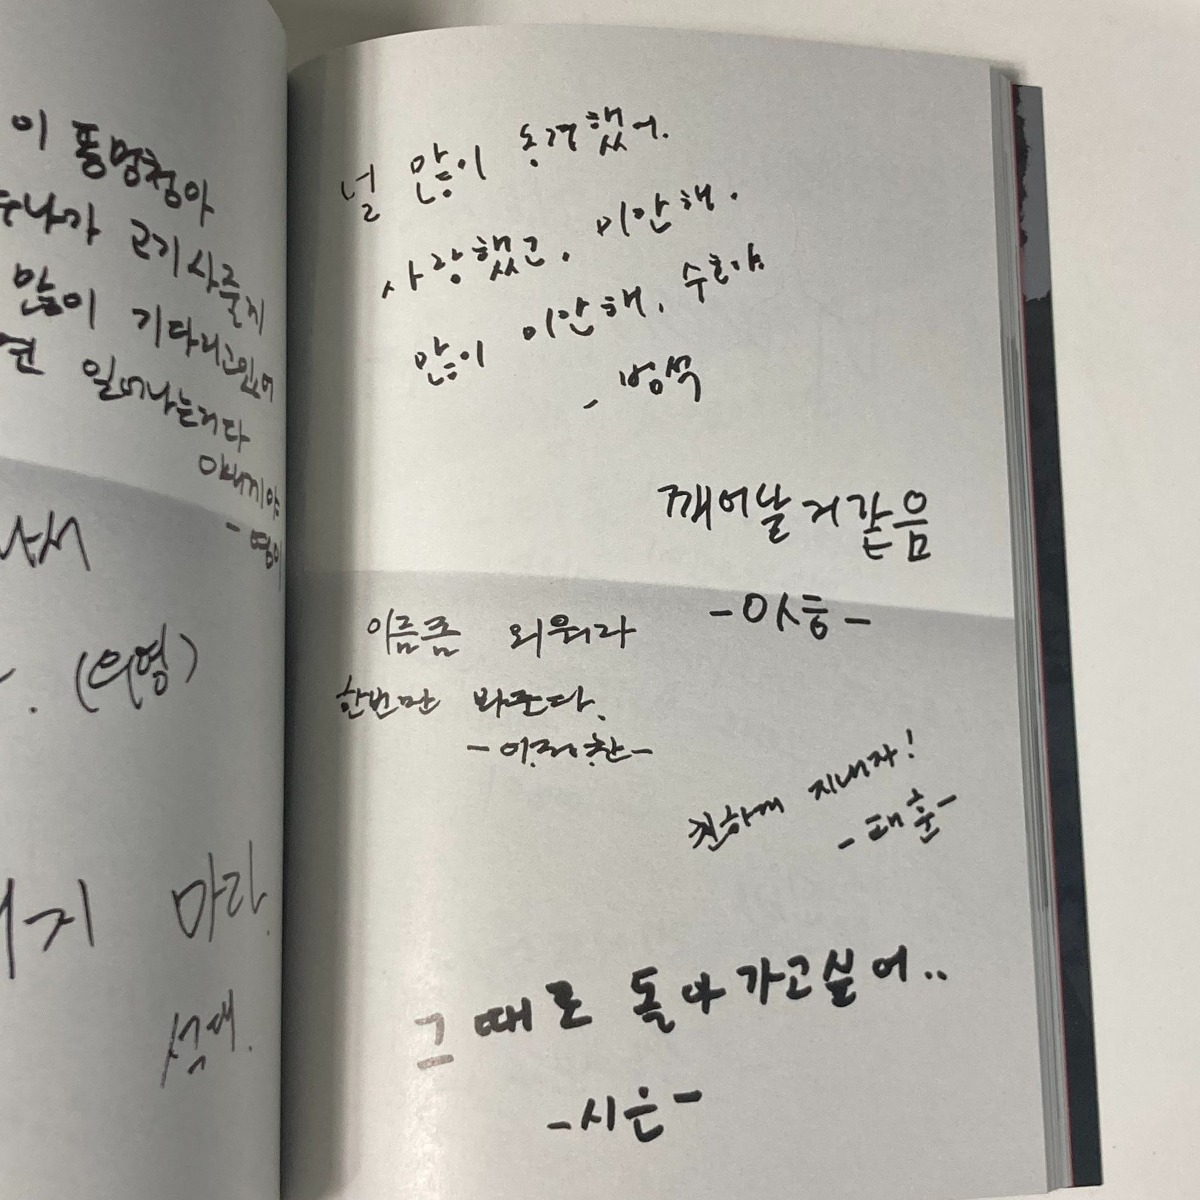 이 똥멍청아
누나가 고기 사줄게
많이 기다리고있어
일어나는거다
이삐지야
- 영이
나서
(영이)
지 마라.
석대.
널 많이 동경했어.
사랑했고, 미안해.
많이 미안해, 수호야
- 범석
깨어날 거 같음
이름좀 외워라
한번만 봐준다.
친하게 지내자!
- 태훈 -
그 때로 돌아가고싶어..
- 시은 -